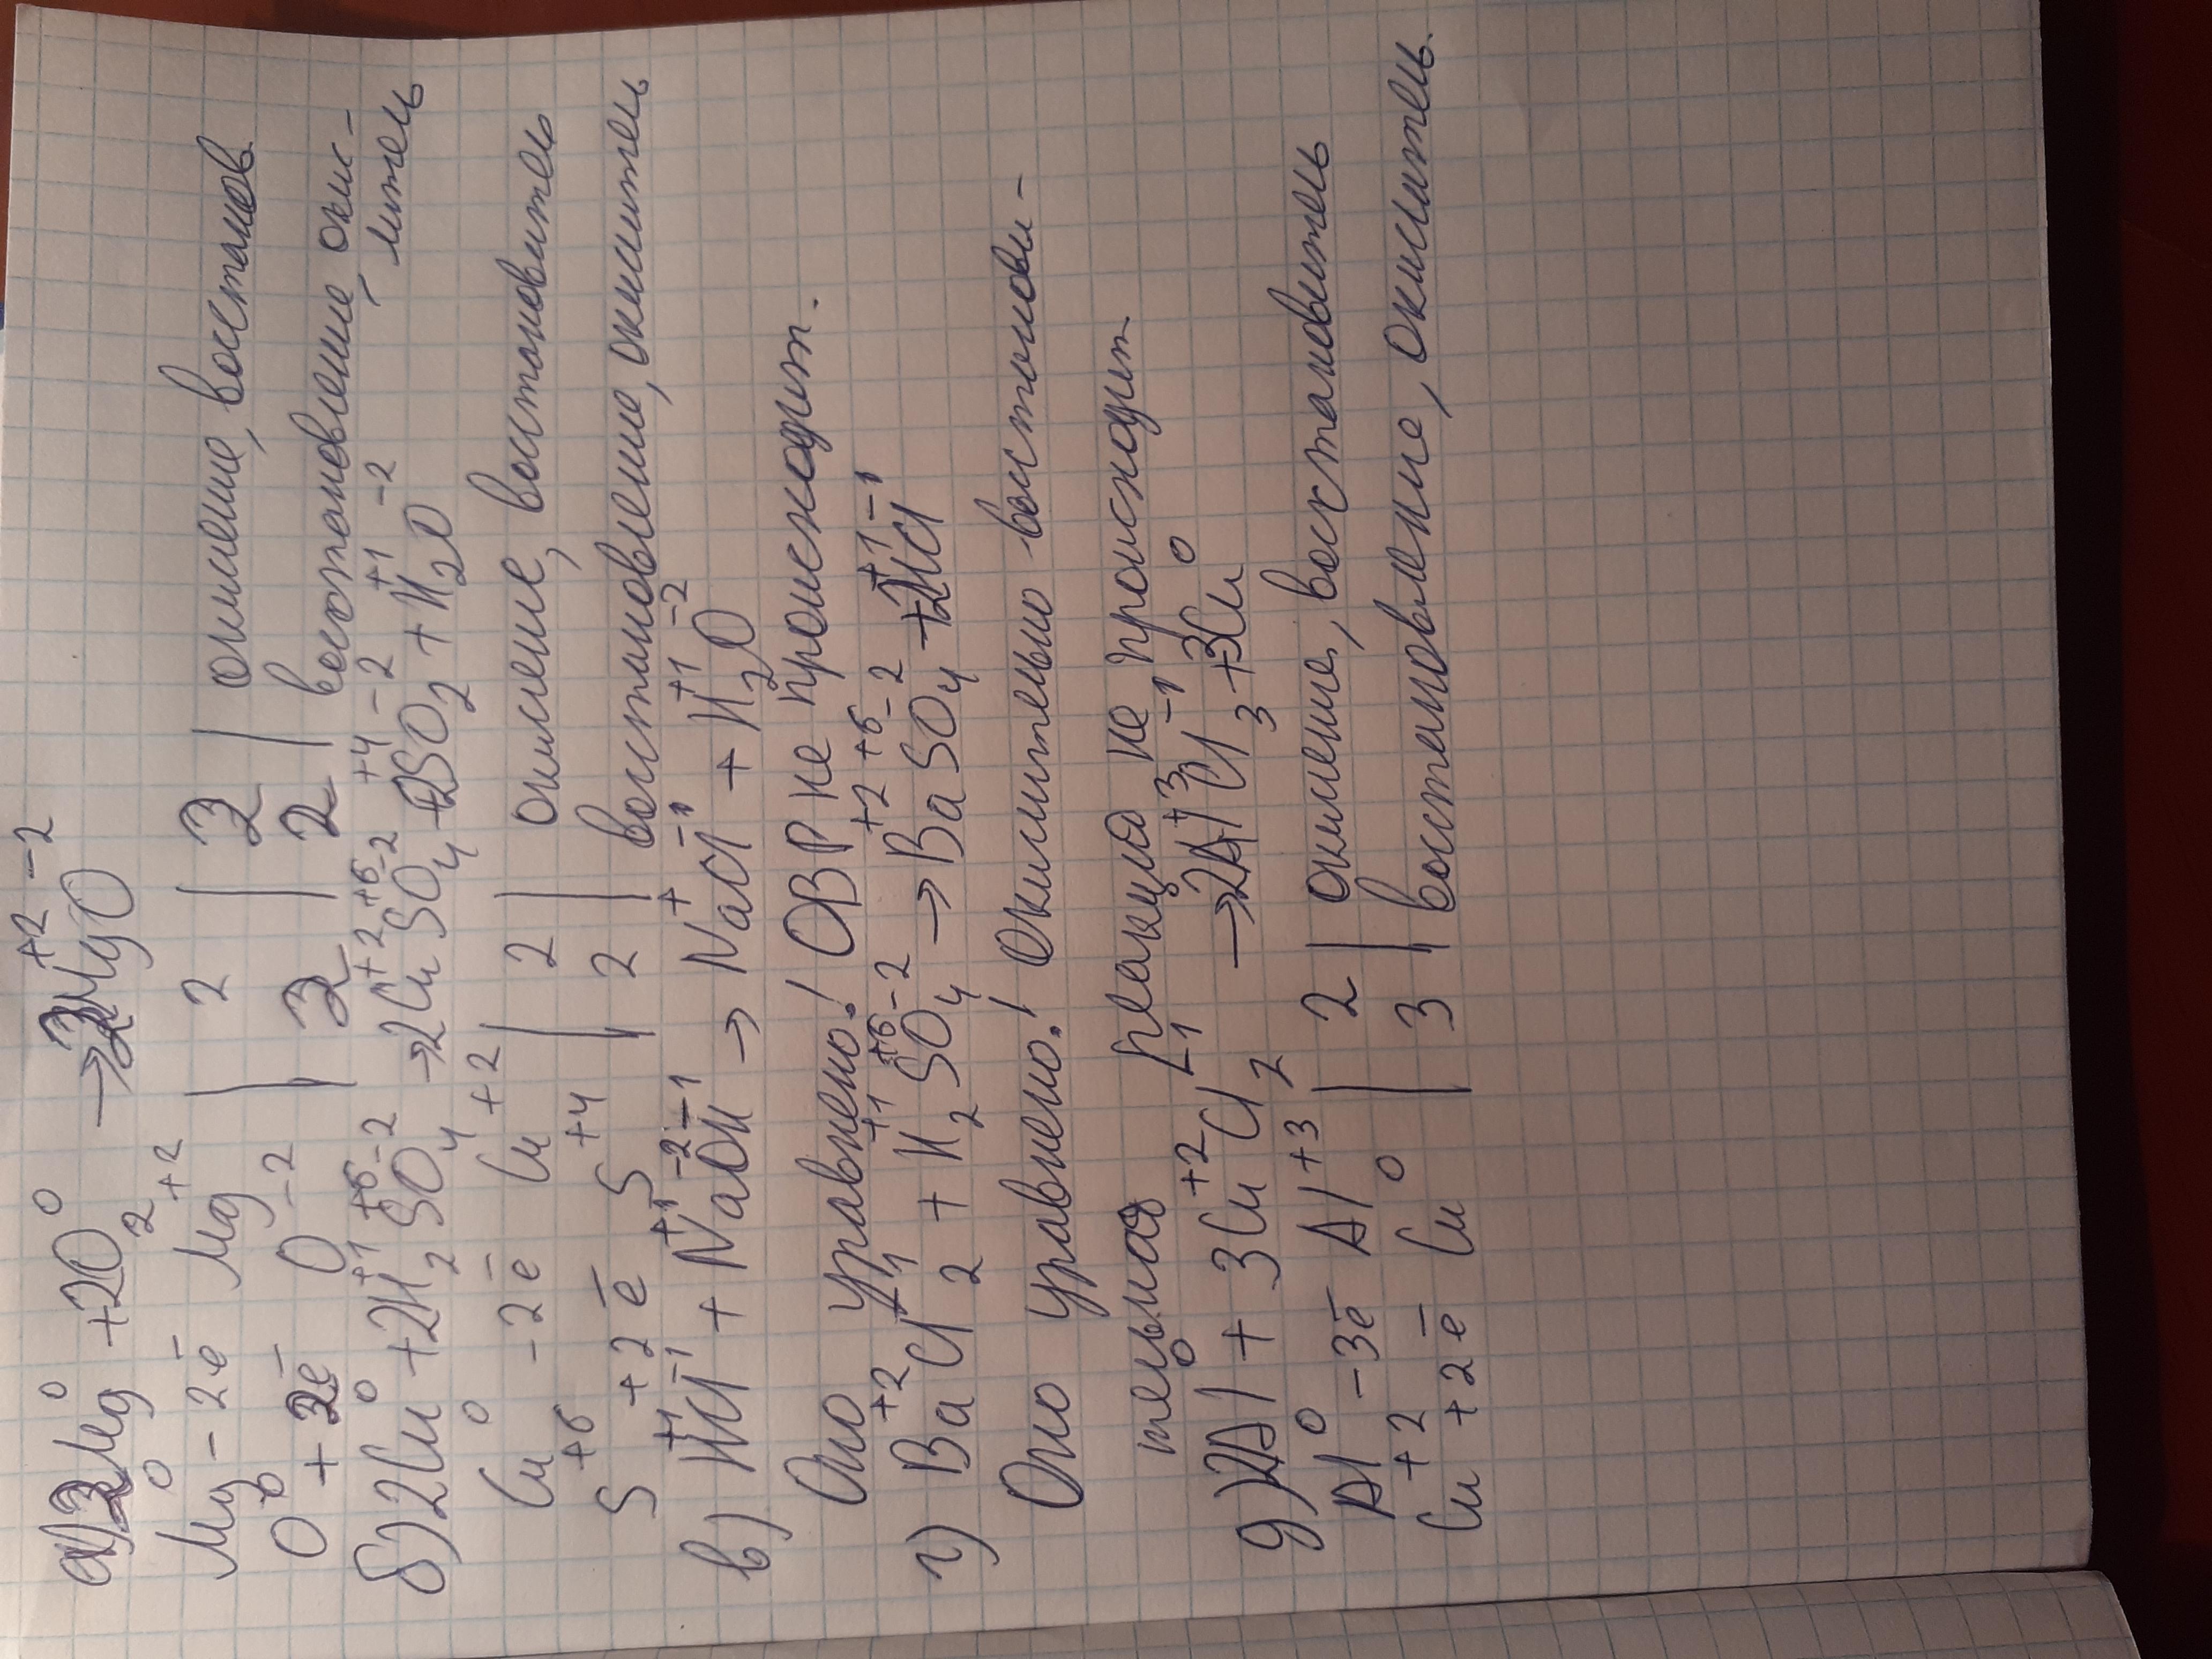 а) 2Mg⁰ + 2O₂⁰ → 2Mg⁺²O⁻²
Mg⁰ - 2e⁻ Mg⁺² | 2 | 2 | окисление, восстанов.
O⁰ + 2e⁻ O⁻² | 2 | 2 | восстоновление, окис-
литель
б) 2Cu⁰ + 2H₂⁺¹S⁺⁶O₄⁻² → 2Cu⁺²S⁺⁶O₄⁻² + 2S⁺⁴O₂⁻² + H₂⁺¹O⁻²
Cu⁰ - 2e⁻ Cu⁺² | 2 | окисление, восстоновитель
S⁺⁶ + 2e⁻ S⁺⁴ | 2 | восстановление, окислитель
в) H⁺¹Cl⁻¹ + Na⁺¹O⁻²H⁻¹ → Na⁺Cl⁻¹ + H₂⁺¹O⁻²
Оно уравнено! ОВР не происходит.
г) Ba⁺²Cl₂⁻¹ + H₂⁺¹S⁺⁶O₄⁻² → Ba⁺²S⁺⁶O₄⁻² + 2H⁺¹Cl⁻¹
Оно уравнено! Окислительно востонови-
тельная реакция не происходит
д) 2Al⁰ + 3Cu⁺²Cl₂⁻¹ → 2Al⁺³Cl₃⁻¹ + 3Cu⁰
Al⁰ - 3e⁻ Al⁺³ | 2 | окисление, восстановитель
Cu⁺² + 2e⁻ Cu⁰ | 3 | восстановление, окислитель.